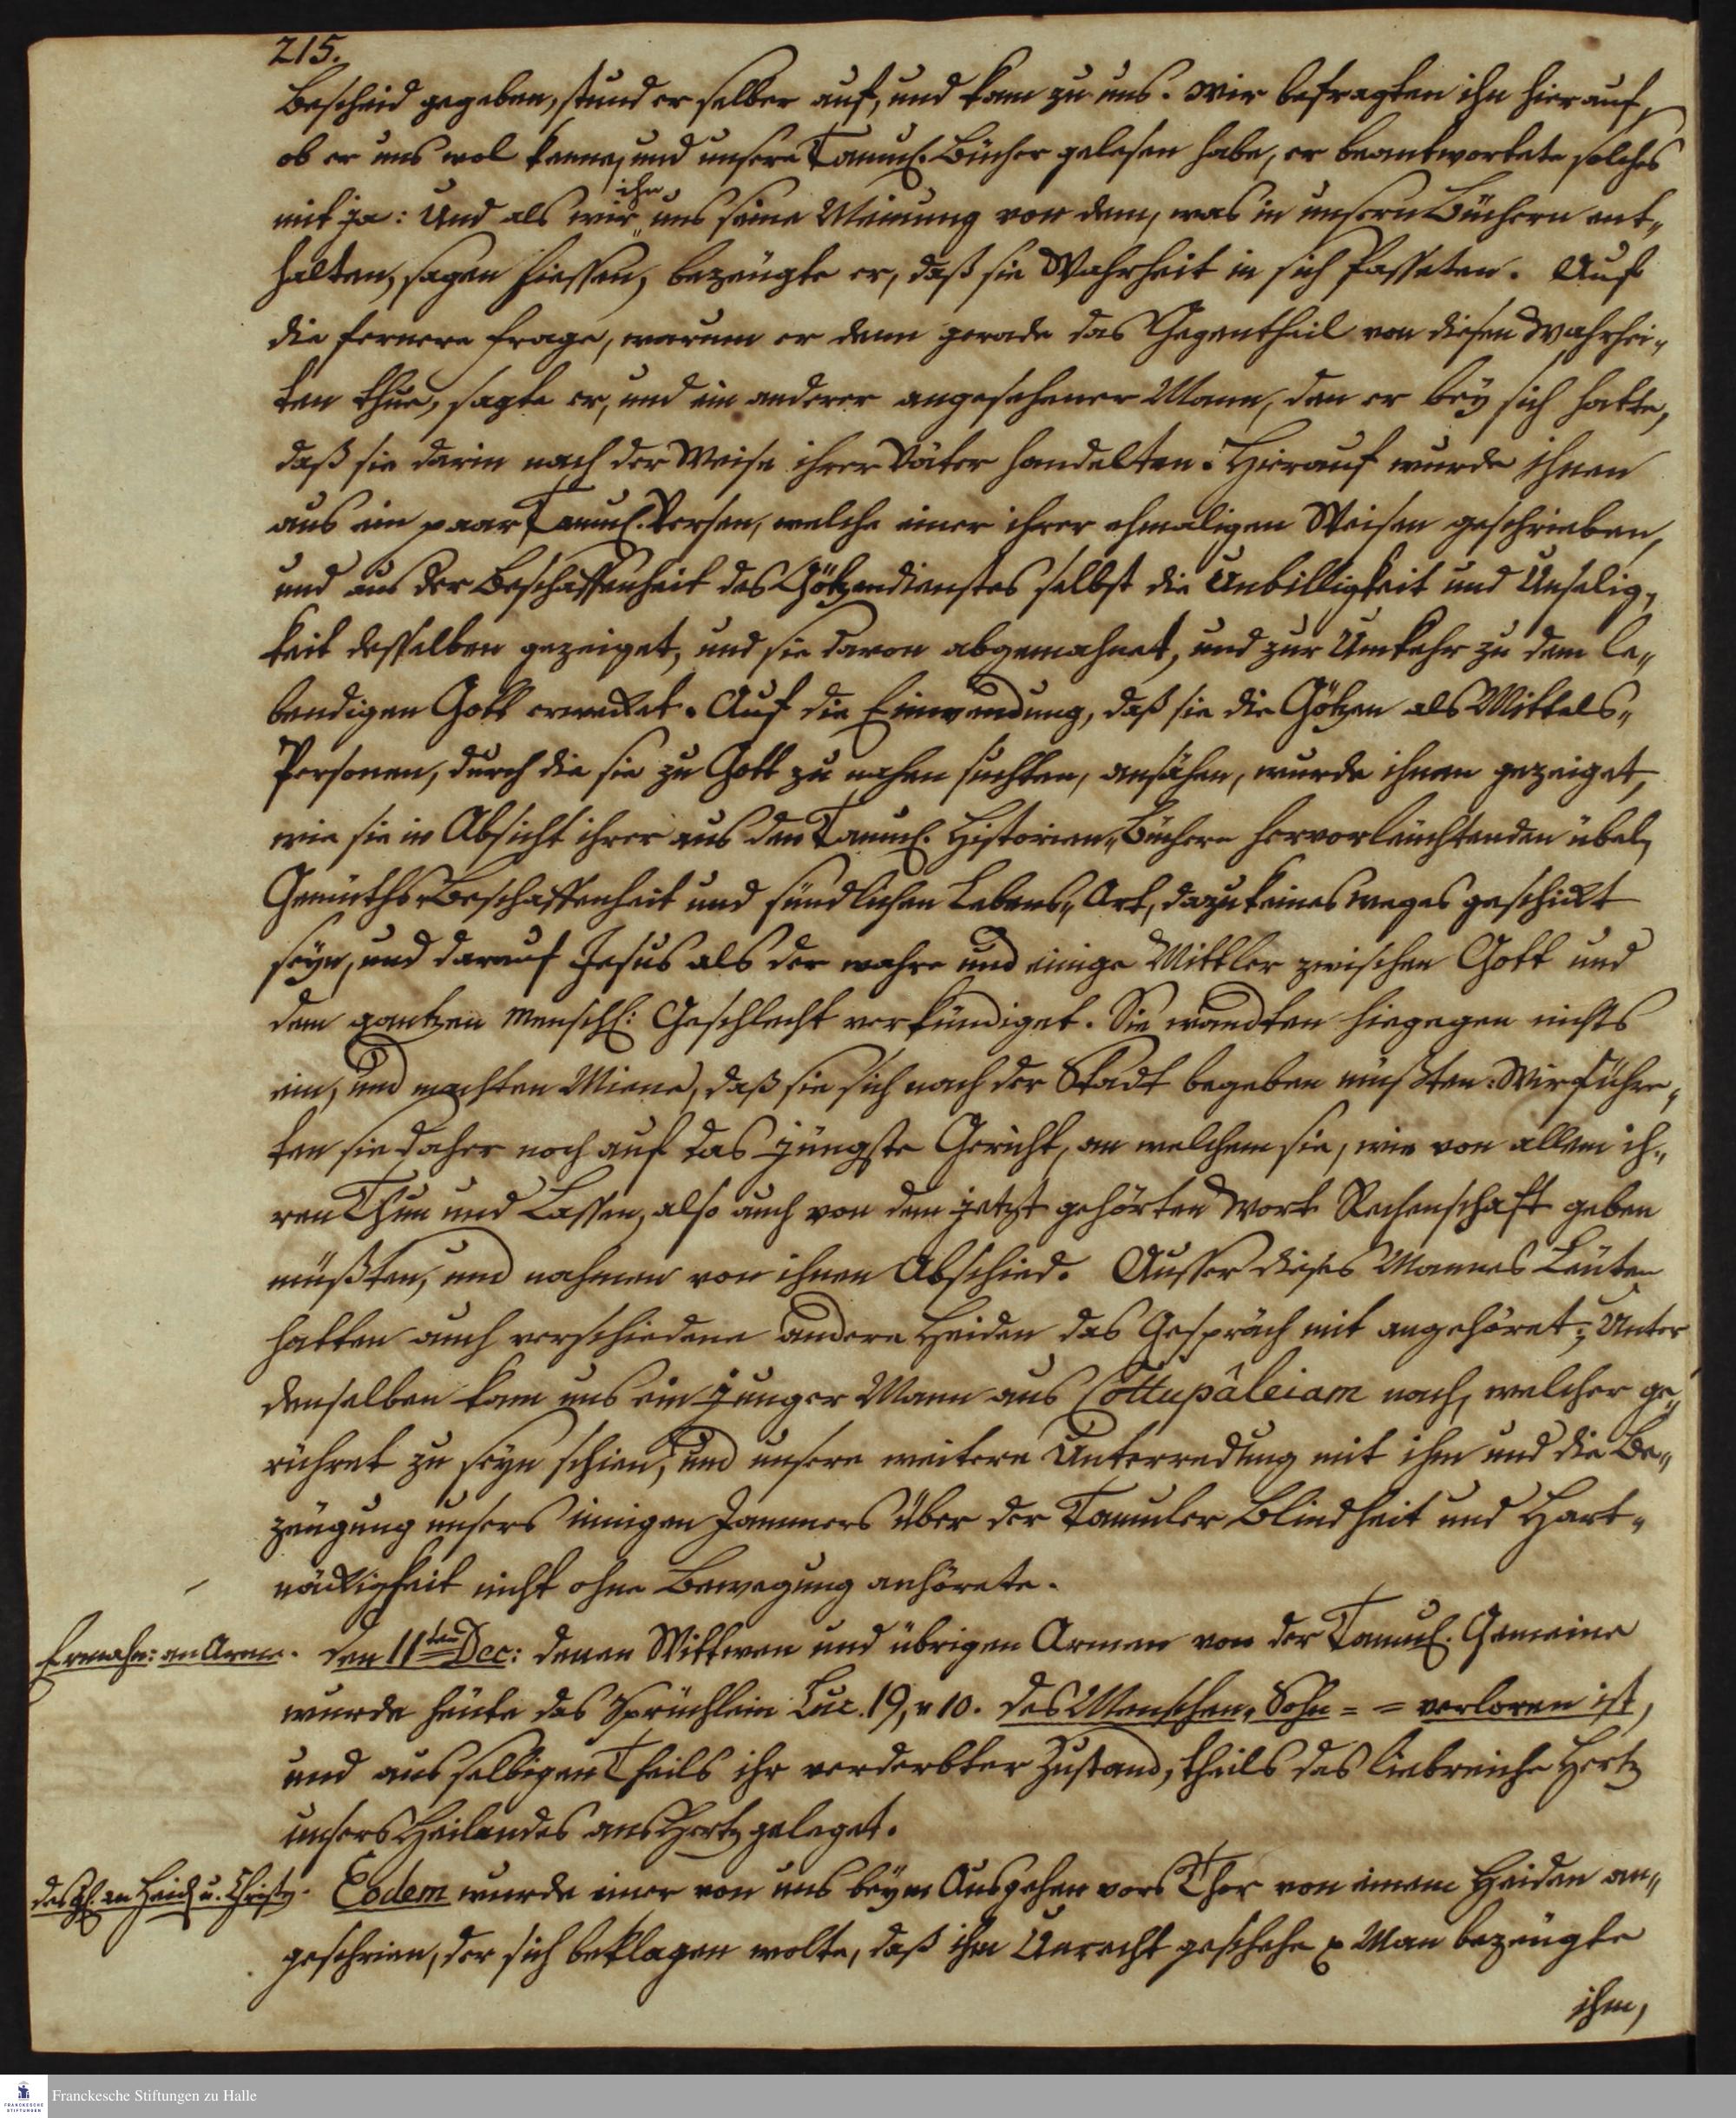 215.
Bescheid gegeben, stund er selber auf, und kam zu uns. Wir befragten ihn hierauf,
ob er uns wol kenne, und unsere Tamul. Bücher gelesen habe, er beantwortete solches
mit ja: Und als wir ihn uns seine Meinung von dem, was in unsern Büchern ent„
halten, sagen hiessen, bezeugte er, daß sie Wahrheit in sich fasseten. Auf
die fernere Frage, warum er denn gerade das Gegentheil von diesen Wahrhei„
ten thue, sagte er, und ein anderer angesehener Mann, den er bey sich hatte,
daß sie darin nach der Weise ihrer Väter handelten. Hierauf wurde ihnen
aus ein paar Tamul. Versen, welche einer ihrer ehmaligen Weisen geschrieben,
und aus der Beschaffenheit des Götzendienstes selbst die Unbilligkeit und Unselig„
keit desselben gezeiget, und sie davon abgemahnet, und zur Umkehr zu dem le„
bendigen Gott erwecket. Auf die Einwendung, daß sie die Götzen als Mittels„
Personen, durch die sie zu Gott zu nahen suchten, ansähen, wurde ihnen gezeiget,
wie sie in Absicht ihrer aus den Tamul. Historien„Büchern hervorleuchtenden übeln
Gemüths„Beschaffenheit und sündlichen Lebens„Art, dazu keinesweges geschickt
seyn, und darauf Jesus als der wahre und einige Mittler zwischen Gott und
dem gantzen menschl: Geschlecht verkündiget. Sie wandten hiegegen nichts
ein, und machten Miene, daß sie sich nach der Stadt begeben müßten: Wir führe„
ten sie daher noch auf das jüngste Gericht, an welchem sie, wie von allem ih„
ren Thun und Lassen, also auch von dem jetzt gehörten Wort Rechenschaft geben
müßten, und nahmen von ihnen Abschied. Ausser dieses Mannes Leuten
hatten auch verschiedene andere Heiden das Gespräch mit angehöret; Unter
denselben kam uns ein junger Mann aus Cottupâleiam nach, welcher ge„
rühret zu seyn schien, und unsere weitere Unterredung mit ihm und die Be„
zeugung unsers innigen Jammers über der Tamuler Blindheit und Hart„
näckigkeit nicht ohne Bewegung anhörete.
Ermahn: an Arme. Den 11ten Dec: denen Wittwen und übrigen Armen von der Tamul. Gemeine
wurde heute das Sprüchlein Luc. 19, v 10. des Menschen„Sohn = = verloren ist,
und aus selbigen Theils ihr verderbter Zustand, theils das liebreiche Hertz
unsers Heilandes ans Hertz geleget.
desgl. an Heid. u. Christen. Eodem wurde einer von uns beym Ausgehen vors Thor von einem Heiden an„
geschrien, der sich beklagen wolte, daß ihm Unrecht geschehe p Man bezeugte
ihm,
Franckesche Stiftungen zu Halle
FRANCKESCHE
STIFTUNGEN